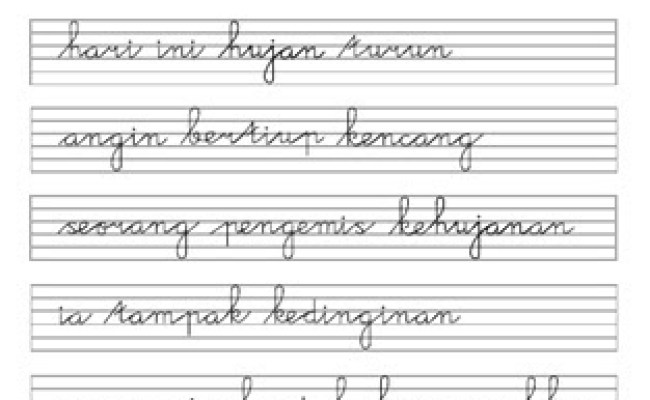 hari ini hujan turun
angin bertiup kencang
seorang pengemis kehujanan
ia tampak kedinginan